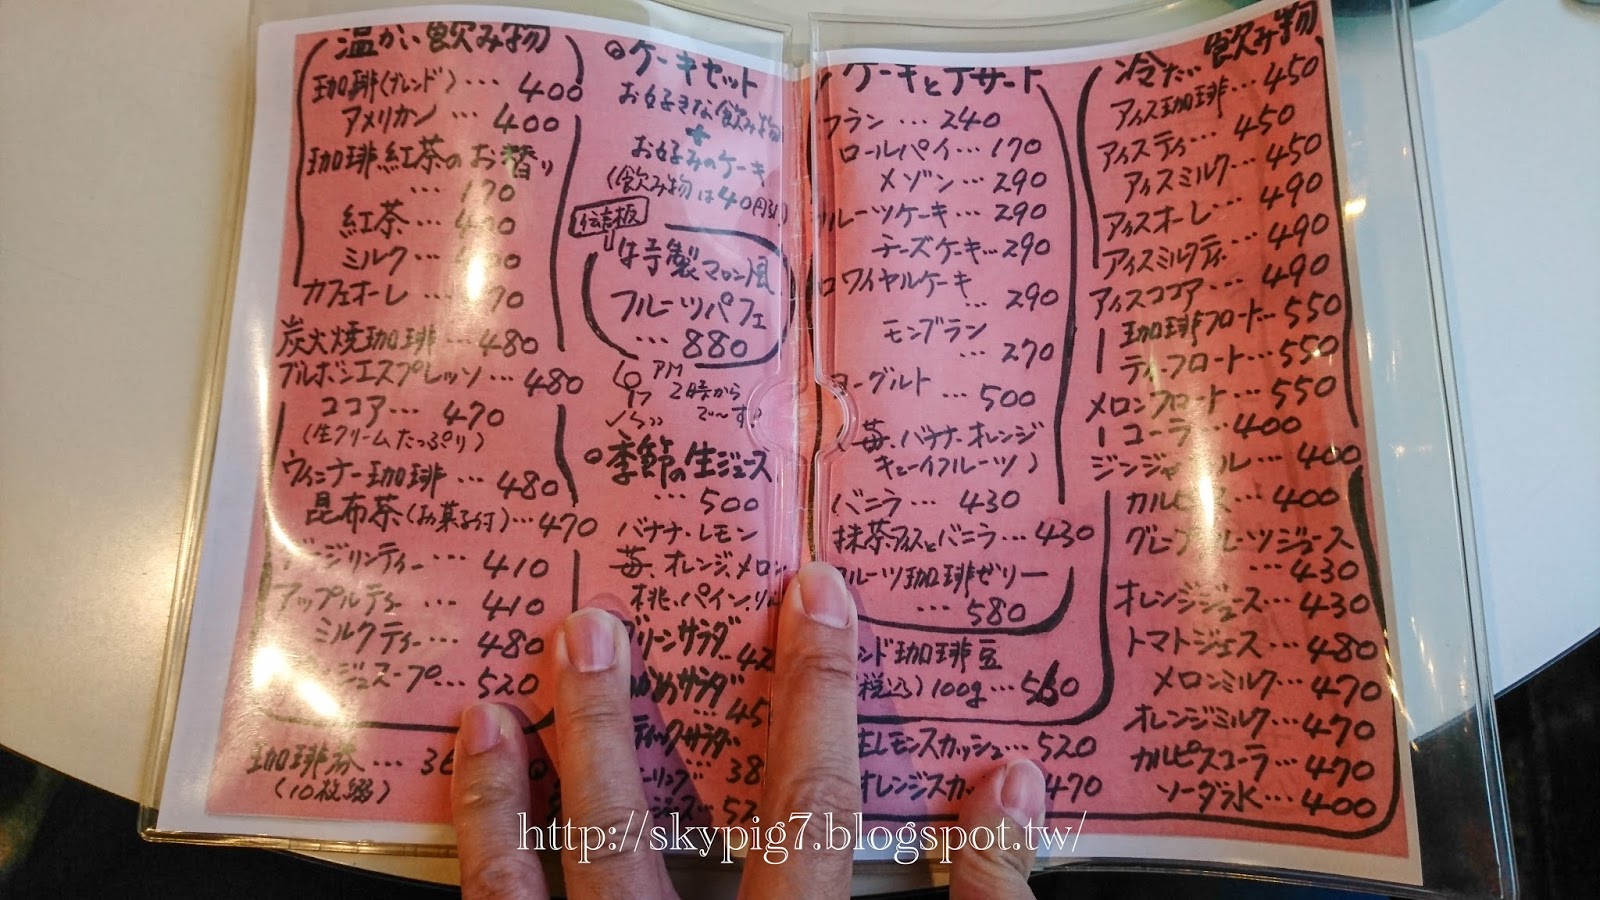 温かい飲み物
珈琲(ブレンド)… 400
アメリカン … 400
珈琲、紅茶のお替り
… 170
紅茶…
ミルク…
カフェオーレ …
炭火焼珈琲 … 480
ブルボンエスプレッソ … 480
ココア… 470
(生クリームたっぷり)
ウィンナー珈琲 … 480
昆布茶(お菓子付)…470
ダージリンティー … 410
アップルティー … 410
ミルクティー … 480
… 520
珈琲券 …
(10枚綴)
ケーキセット
お好きな飲み物
+
お好みのケーキ
(飲み物は40円引)
伝言板
特製マロン風
フルーツパフェ
… 880
PM
2時から
で〜す
季節の生ジュース
… 500
バナナ・レモン
苺、オレンジ、メロン
桃、パイン、
グリーンサラダ
わかめサラダ
サラダ
ケーキとデザート
フラン … 240
ロールパイ… 170
メゾン… 290
フルーツケーキ… 290
チーズケーキ… 290
ロワイヤルケーキ
… 290
モンブラン
… 270
ヨーグルト
… 500
(苺、バナナ・オレンジ
キューイフルーツ)
バニラ… 430
抹茶アイスとバニラ… 430
フルーツ珈琲ゼリー
… 580
珈琲豆
(税込)100g…
生レモンスカッシュ… 520
オレンジスカ 470
冷たい飲み物
アイス珈琲… 450
アイスティ… 450
アイスミルク… 450
アイスオーレ… 490
アイスミルクティ… 490
アイスココア… 490
珈琲フロート… 550
ティーフロート… 550
メロンフロート… 550
コーラ… 400
ジンジャエール… 400
カルピス… 400
グレープフルーツジュース
… 430
オレンジジュース… 430
トマトジュース… 480
メロンミルク… 470
オレンジミルク… 470
カルピスコーラ… 470
ソーダ水… 400
http://skypig7.blogspot.tw/